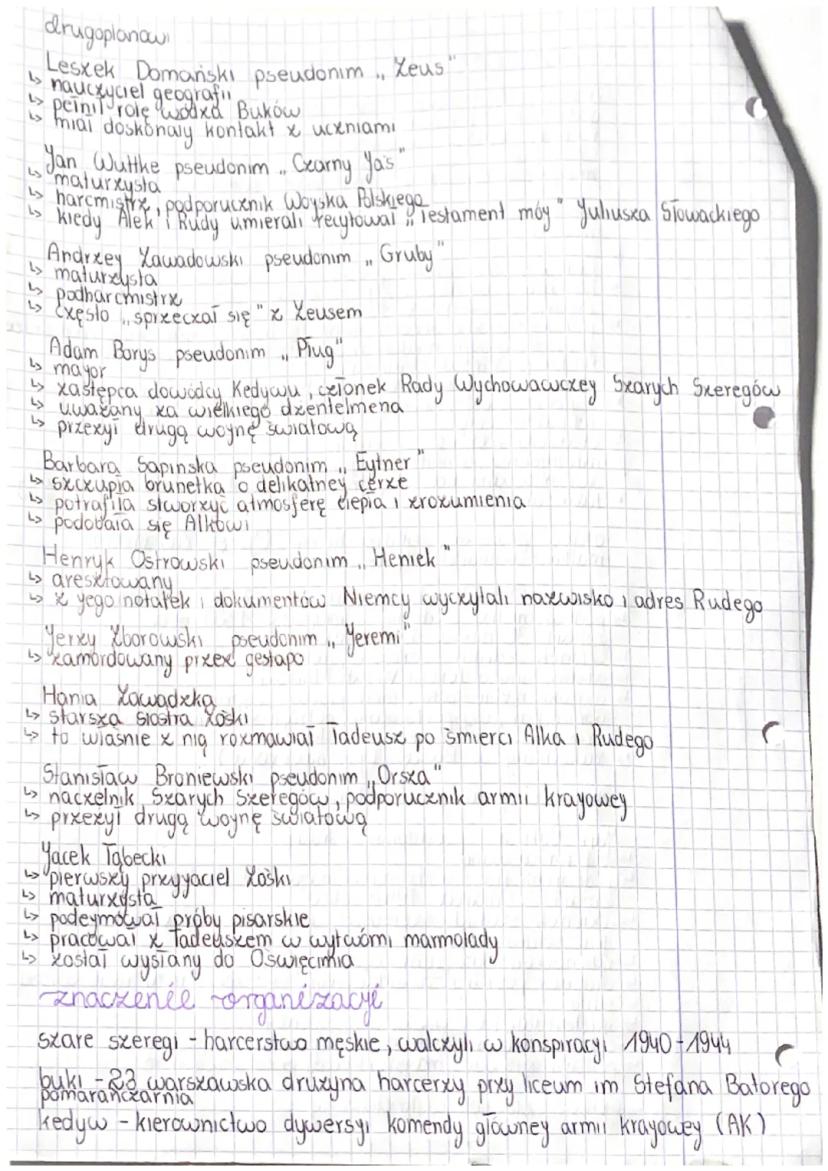 drugoplanowi
Leszek Domański pseudonim „Zeus"
↳ nauczyciel geografii
↳ pełnił rolę wodza Buków
↳ miał doskonały kontakt z uczniami
Jan Wuttke pseudonim „Czarny Jaś"
↳ maturzysta
↳ harcmistrz, podporucznik Wojska Polskiego
↳ kiedy Alek i Rudy umierali recytował „Testament mój" Juliusza Słowackiego
Andrzej Zawadowski pseudonim „Gruby"
↳ maturzysta
↳ podharcmistrz
↳ często „sprzeczał się" z Zeusem
Adam Borys pseudonim „Pług"
↳ major
↳ zastępca dowódcy Kedywu, członek Rady Wychowawczej Szarych Szeregów
↳ uważany za wielkiego dżentelmena
↳ przeżył drugą wojnę światową
Barbara Sapińska pseudonim „Eytner"
↳ szczupła brunetka o delikatnej cerze
↳ potrafiła stworzyć atmosferę ciepła i zrozumienia
↳ podobała się Alkowi
Henryk Ostrowski pseudonim „Heniek"
↳ aresztowany
↳ z jego notatek i dokumentów Niemcy wyczytali nazwisko i adres Rudego
Jerzy Zborowski pseudonim „Jeremi"
↳ zamordowany przez gestapo
Hania Zawadzka
↳ starsza siostra Zośki
↳ to właśnie z nią rozmawiał Tadeusz po śmierci Alka i Rudego
Stanisław Broniewski pseudonim „Orsza"
↳ naczelnik Szarych Szeregów, podporucznik armii krajowej
↳ przeżył drugą wojnę światową
Jacek Tabęcki
↳ pierwszy przyjaciel Zośki
↳ maturzysta
↳ podejmował próby pisarskie
↳ pracował z Tadeuszem w wytwórni marmolady
↳ został wysłany do Oświęcimia
znaczenie organizacji
szare szeregi - harcerstwo męskie, walczyli w konspiracji 1940-1944
buki - 23 warszawska drużyna harcerzy przy liceum im Stefana Batorego
pomarańczarnia
kedyw - kierownictwo dywersji komendy głównej armii krajowej (AK)